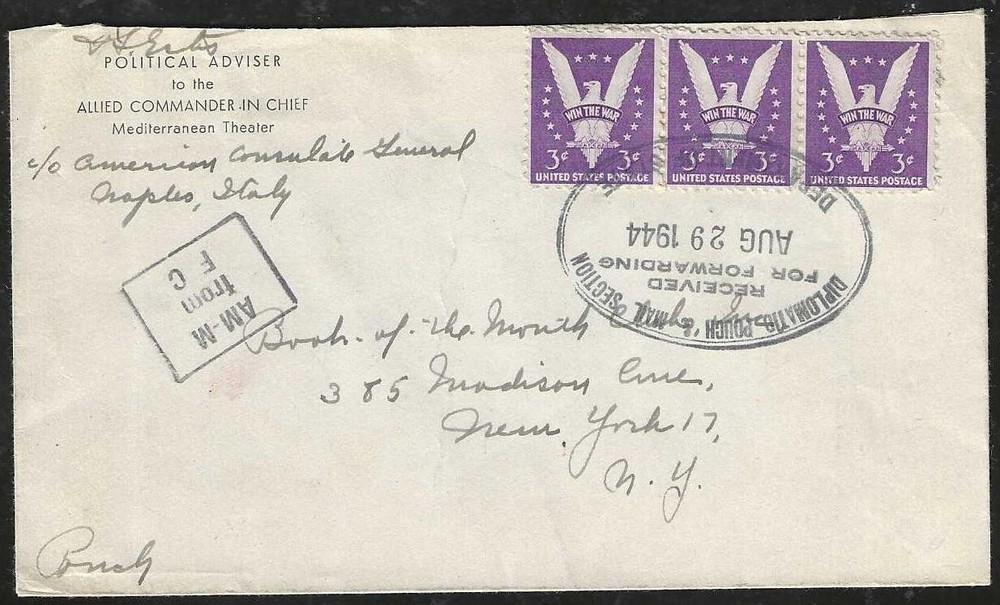 POLITICAL ADVISER
to the
ALLIED COMMANDER-IN CHIEF
Mediterranean Theater
c/o American Consulate General
Naples, Italy
WIN THE WAR
3¢ 3¢
UNITED STATES POSTAGE
WIN THE WAR
3¢ 3¢
UNITED STATES POSTAGE
WIN THE WAR
3¢ 3¢
UNITED STATES POSTAGE
DIPLOMATIC POUCH MAIL SECTION
RECEIVED
FOR FORWARDING
AUG 29 1944
AM-M
from
F C
Book-of-the-Month Club, Inc.
385 Madison Ave,
New York 17,
N. Y.
Pouch